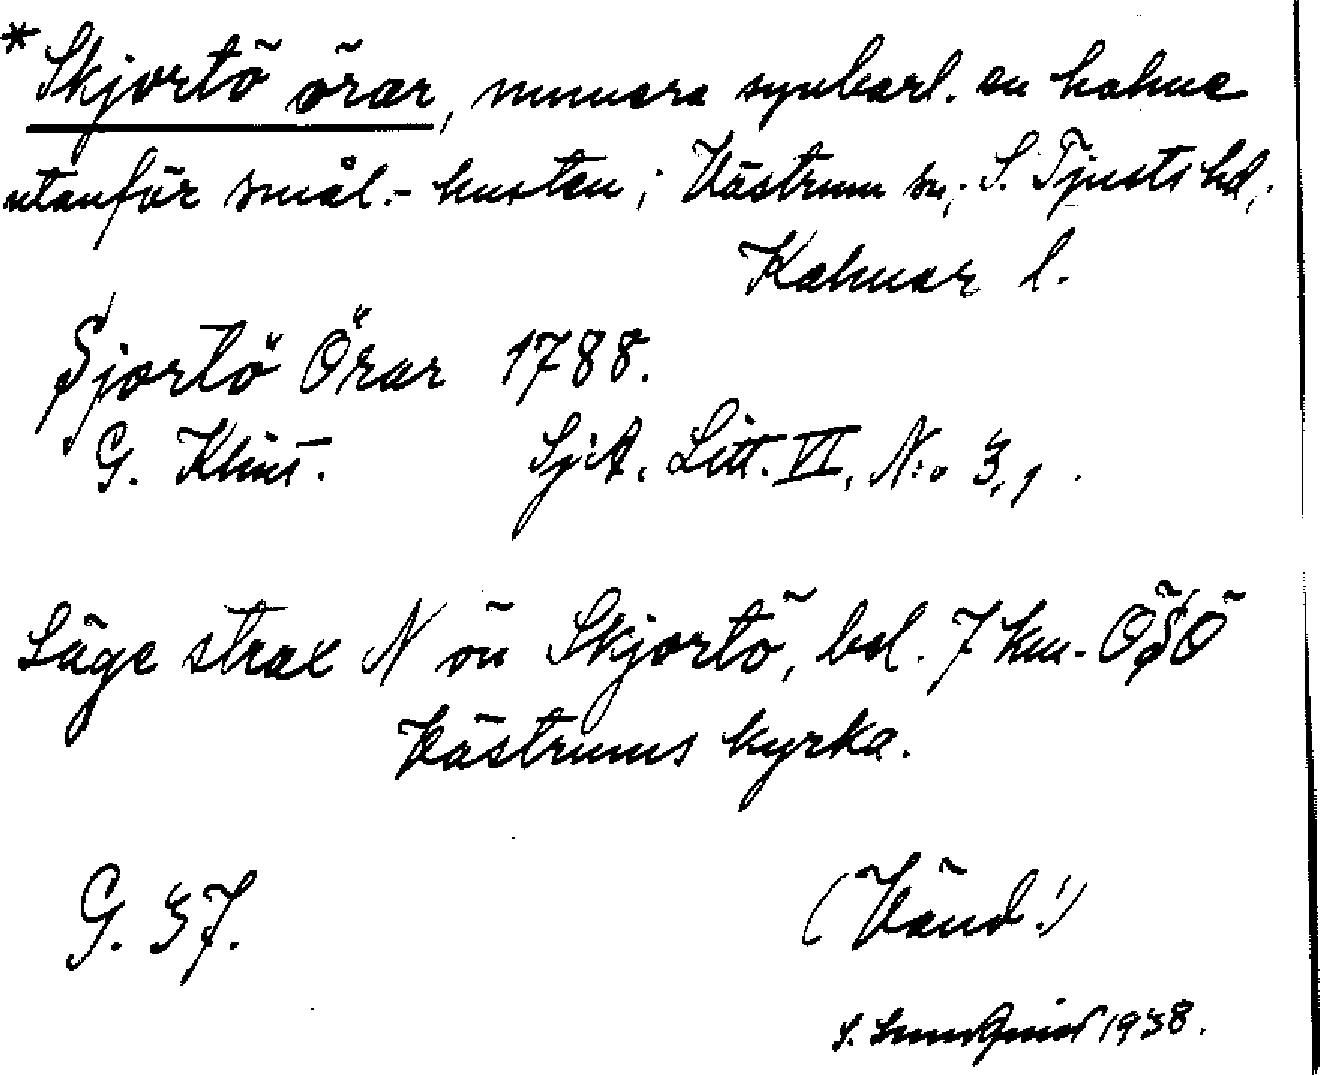 *Skjortö örar, numera synbarl. en holme
utanför smål.-kusten; Västrum sn; S. Tjusts hd,
Kalmar l.
Sjortö Örar 1788.
G. Klint. SjA. Litt. VI, N:o 3,1.
Läge strax N ön Skjortö, bel. 7 km. ÖSÖ
Västrums kyrka.
G. 37.
(Vänd!)
S. 1938.